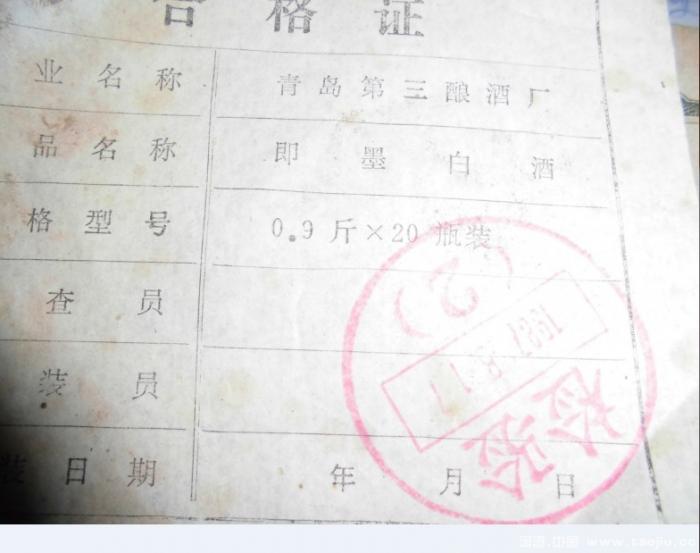 合格证
业名称 青岛第三酿酒厂
品名称 即墨白酒
格型号 0.9斤×20瓶装
查员
装员
装日期 年 月 日
检验
1987.8.17
(2)
www.taojiu.cc